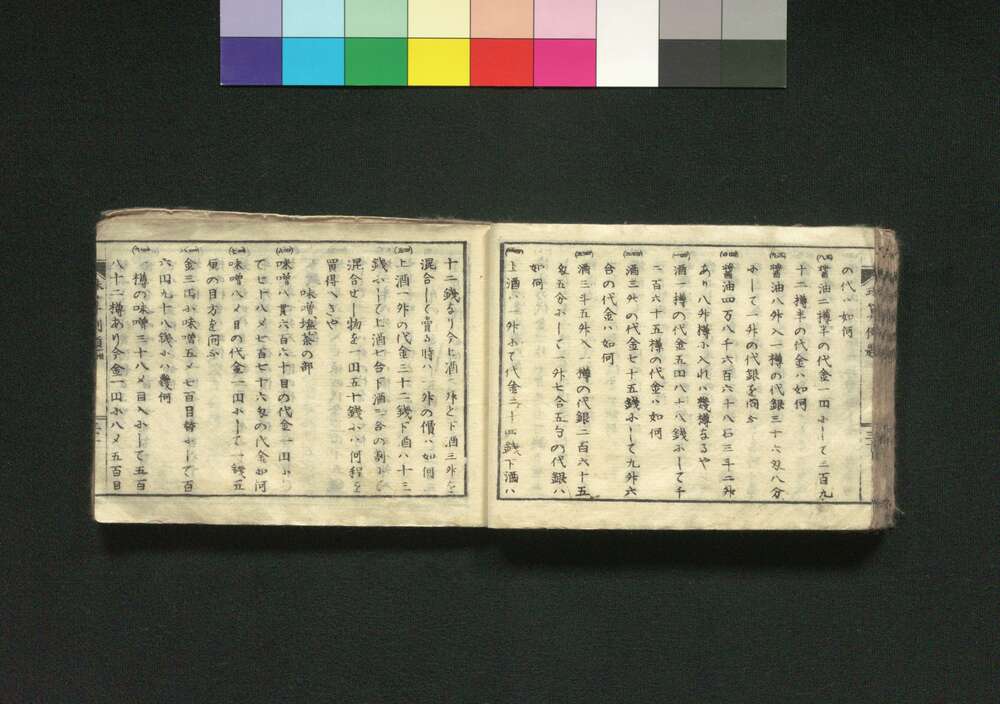 の代ハ如何
醤油二樽半の代金一円ふして二百九
十二樽半の代金ハ如何
醤油八升入一樽の代銀三十六匁八分
ふして一升の代銀を問ふ
醤油四万八千六百六十八石三斗二升
あり八升樽ふ入れハ幾樽なるや
酒一樽の代金五円八十八銭ふして千
二百六十五樽の代金ハ如何
酒三升の代金七十五銭ふして九升六
合の代金ハ如何
酒三斗五升入一樽の代銀二百六十五
匁五分ふして一升七合五勺の代銀ハ
如何
上酒ハ一升ふて代金二十四銭下酒ハ
十二銭なり今上酒二升と下酒三升を
混合して賣る時ハ一升の價ハ如何
上酒一升の代金三十二銭下酒八十三
銭ふして上酒七合下酒三合の割ふ
混合せし物を一円五十銭ふハ何程を
買得べきや
味噌塩茶の部
味噌八貫六百六十目の代金一円ふ
て七千八メ七百七十六匁の代金如何
味噌八メ目の代金一円ふして一銭五
厘の目方を問ふ
金三円ふ味噌五メ七百目替ふして百
六円九十八銭ふハ幾何
一樽の味噌三十八メ目入ふして五百
八十二樽あり今金一円ふ八メ五百目